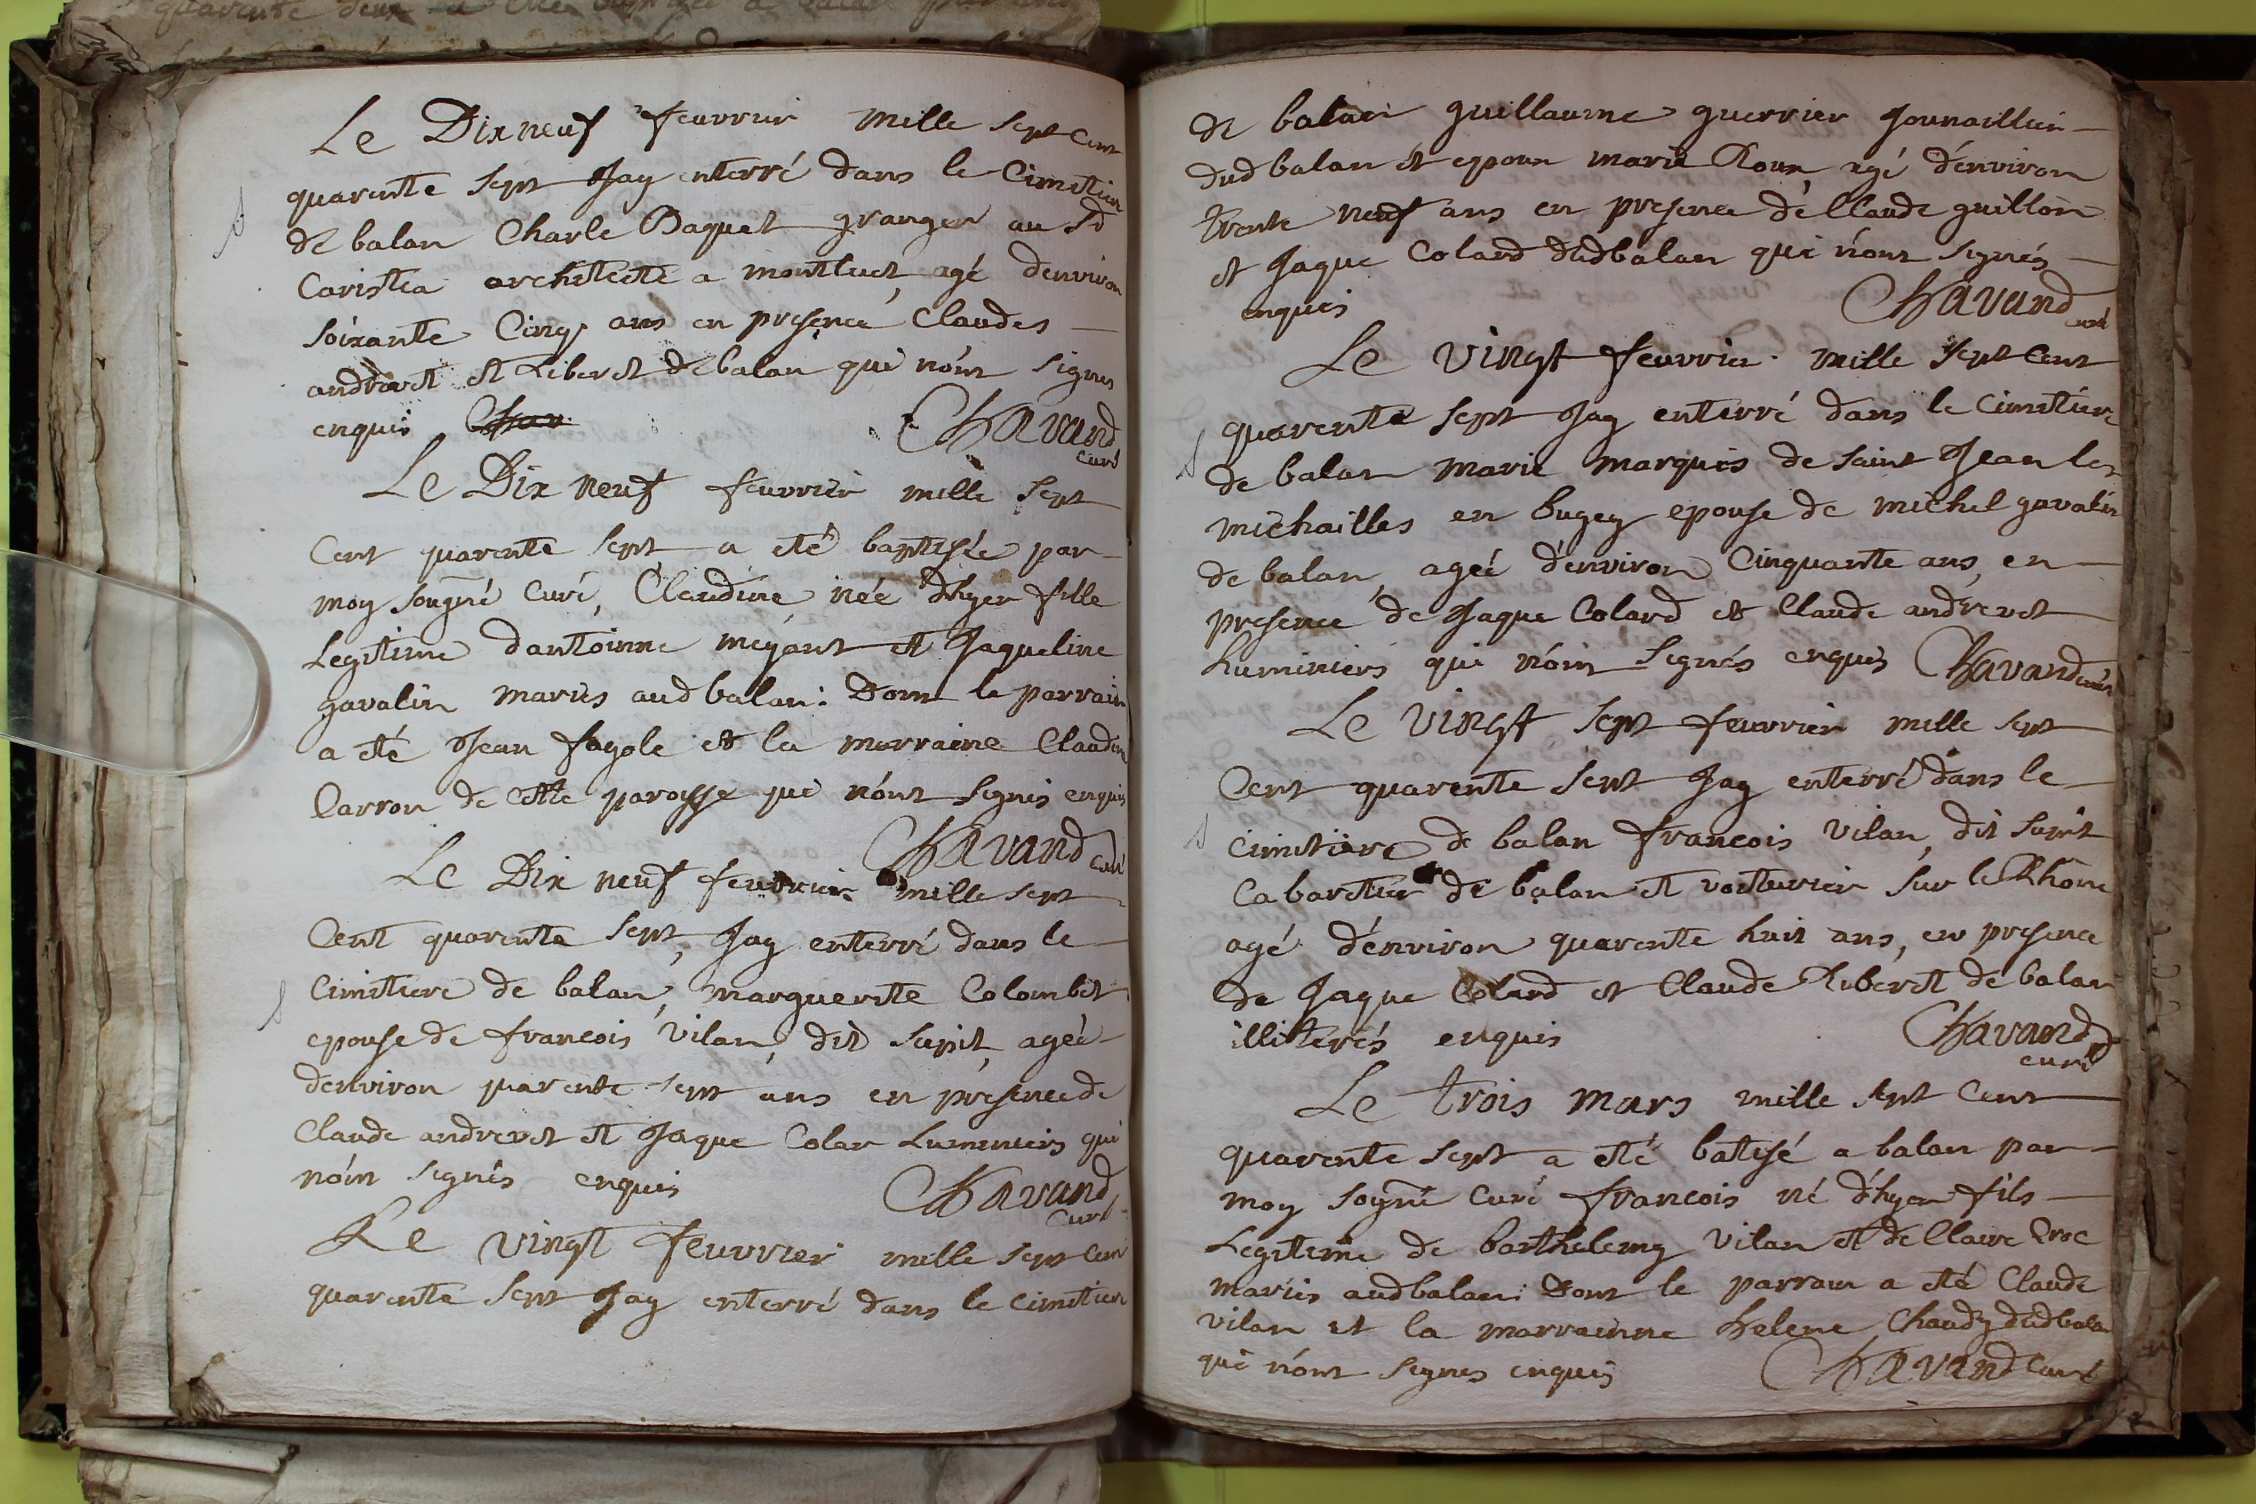 Le Dix neuf feuvrier mille sept cent
quarente sept Jay enterré dans le Cimitiere
de balan Charle Baquet granger au Sr
Caristia architecte a montluet, agé denviron
soixante Cinq ans en presence Claudes
andrevet et Liberet de balan qui n'ont signes
enquis Chavand
curé
Le Dix neuf feuvrier mille sept
Cent quarente sept a eté baptisée par
moy sousgné curé, Claudine née d'hyer fille
Legitime dantoinne meyant et Jaqueline
gavalin mariés aud balan: Dont le parrain
a eté Jean fayole et la marraine Claudine
Carron de cette paroisse qui n'ont signés enquis
Chavand curé
Le Dix neuf feuvrier mille sept
Cent quarente sept, Jay enterré dans le
Cimitiere de balan, marguerite Colombet
epouse de francois vilan, dit supit, agée
denviron quarente sept ans en presence de
Claude andrevet et Jaque Colar Luminiers qui
n'ont signés enquis Chavand
curé
Le vingt feuvrier mille sept cent
quarente sept Jay enterré dans le cimitiere
de balan guillaume guerrier Journaillier
dud balan et epoux marie Roux agé d'environ
trente neuf ans en presence de Claude guillon
et Jaque Colard dudbalan qui n'ont signés
enquis Chavand curé
Le vingt feuvrier mille sept Cent
quarente sept Jay enterré dans le Cimitiere
de balan marie marquis de saint Jean les
michailles en bugey epouse de michel gavalin
de balan, agée d'environ Cinquante ans, en
presence de Jaque Colard et Claude andrevet
Luminiers qui n'ont signés enquis Chavand curé
Le vingt sept feuvrier mille sept
Cent quarente sept Jay enterré dans le
Cimitiere de balan francois vilan, dit supit
Cabaretier de balan et voiturier sur le Rhône
agé d'environ quarente huit ans, en presence
de Jaque Colard et Claude Liberet de balan
illiterés enquis Chavand
curé
Le trois mars mille sept Cent
quarente sept a eté batisé a balan par
moy sousgné curé francois né d'hyer fils
Legitime de barthelemy vilan et de Claire
mariés aud balan: Dont le parrain a eté Claude
vilan et la marrainne helene Chaudy dudbalan
qui n'ont signés enquis Chavand curé